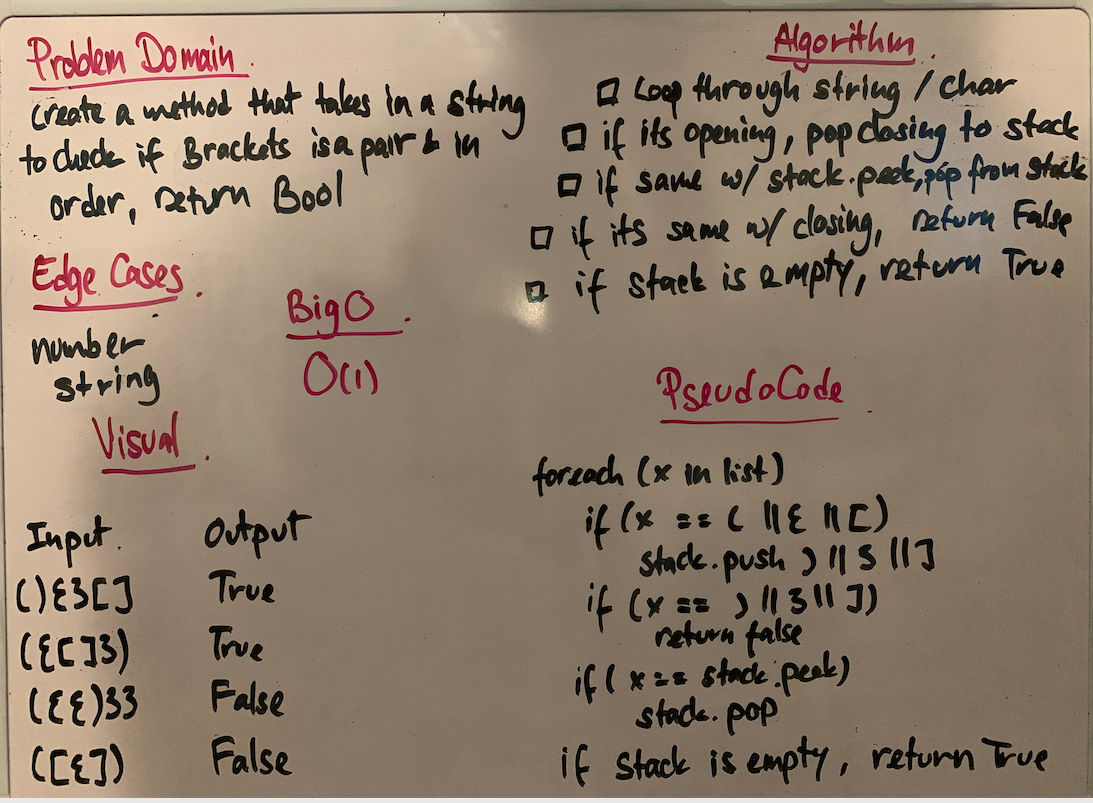 Problem Domain.
create a method that takes in a string
to check if Brackets is a pair & in
order, return Bool
Edge Cases.
number
string
Big O.
O(1)
Visual.
Input. Output
(){}[] True
({[]}) True
({{)}} False
([{]) False
Algorithm.
□ Loop through string / char
□ if its opening, pop closing to stack
□ if same w/ stack.peek, pop from stack
□ if its same w/ closing, return False
□ if stack is empty, return True
PseudoCode.
foreach (x in list)
if (x == ( || { || [)
stack.push ) || } || ]
if (x == ) || } || ])
return false
if ( x == stack.peek)
stack.pop
if stack is empty, return True